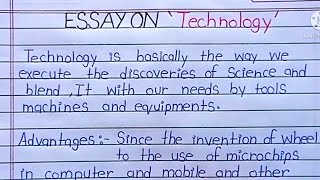 ESSAY ON 'Technology'
Technology is basically the way we
execute the discoveries of Science and
blend , It with our needs by tools
machines and equipments.
Advantages:- Since the invention of wheel
to the use of microchips
in computer and mobile and other